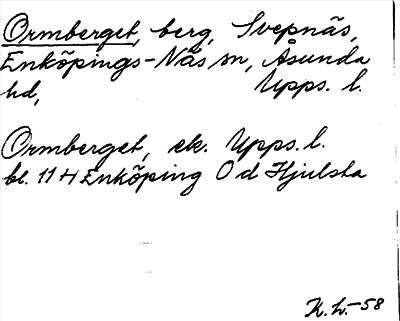 Ormberget, berg, Svepnäs,
Enköpings-Näs sn, Åsunda
hd, Upps. l.
Ormberget, ek. Upps. l.
bl. 11 H Enköping O d Hjulsta
K. L. -58